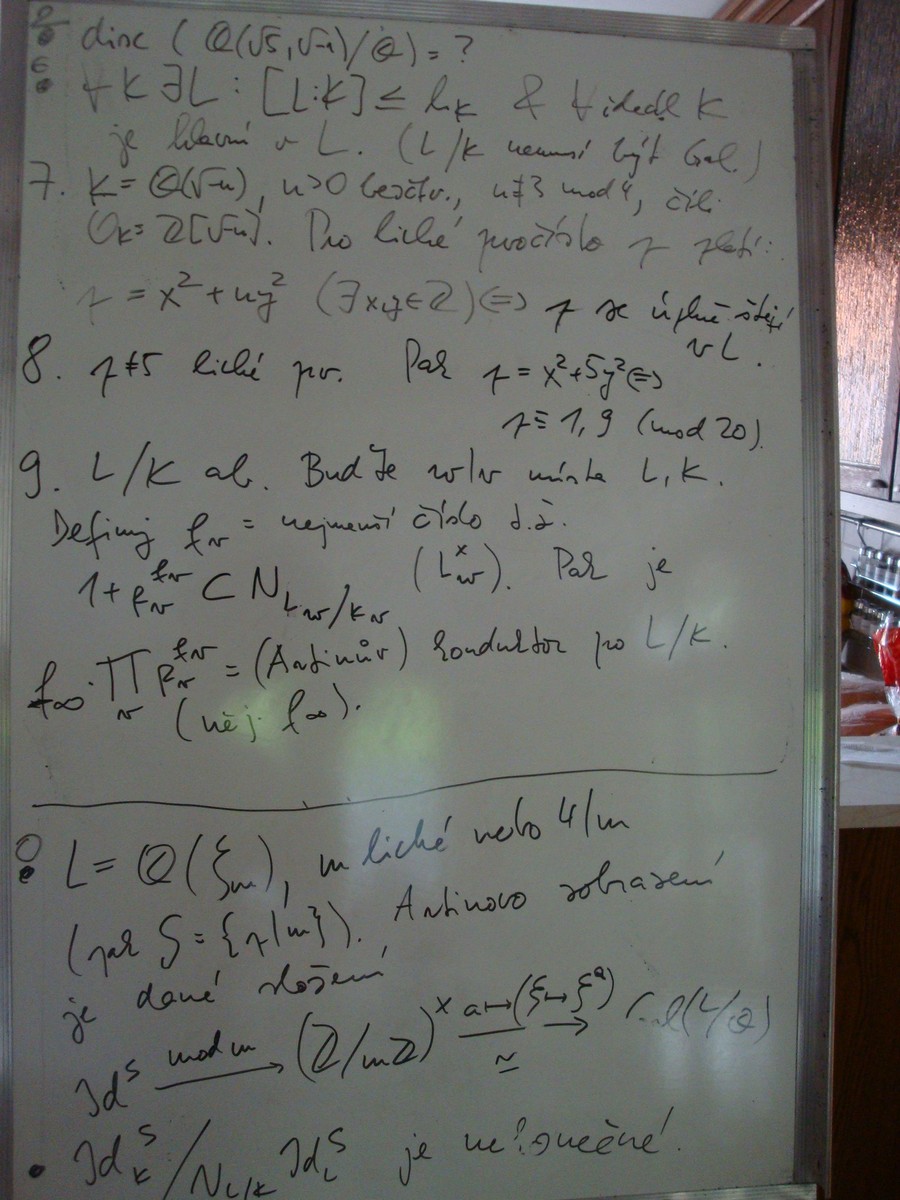 • disc (ℚ(√5, √-1)/ℚ) = ?
• ∀K ∃L : [L:K] ≤ h_K & ∀ ideál K
je hlavní v L. (L/K nemusí být Gal.)
7. K = ℚ(√-n), n>0 bezčtv., n≢3 mod 4, čili
O_K = ℤ[√-n]. Pro liché prvočíslo p platí:
p = x² + ny² (∃x,y∈ℤ) ⟺ p se úplně štěpí
v L.
8. p≠5 liché prv. Pak p = x²+5y² ⟺
p ≡ 1, 9 (mod 20).
9. L/K ab. Buďte w/v místa L, K.
Definuj f_v = nejmenší číslo t.ž.
1 + p_v^{f_v} ⊂ N_{L_w/K_v} (L_w^×). Pak je
f_∞ · ∏_v p_v^{f_v} = (Artinův) konduktor pro L/K.
(něj. f_∞).
• L = ℚ(ξ_m), m liché nebo 4/m
(pak S = {p|m}). Artinovo zobrazení
je dané složení
Id^S —mod m→ (ℤ/mℤ)^× —a↦(ξ↦ξ^a)→ ≃ Gal(L/ℚ)
• Id_K^S / N_{L/K} Id_L^S je nekonečné.